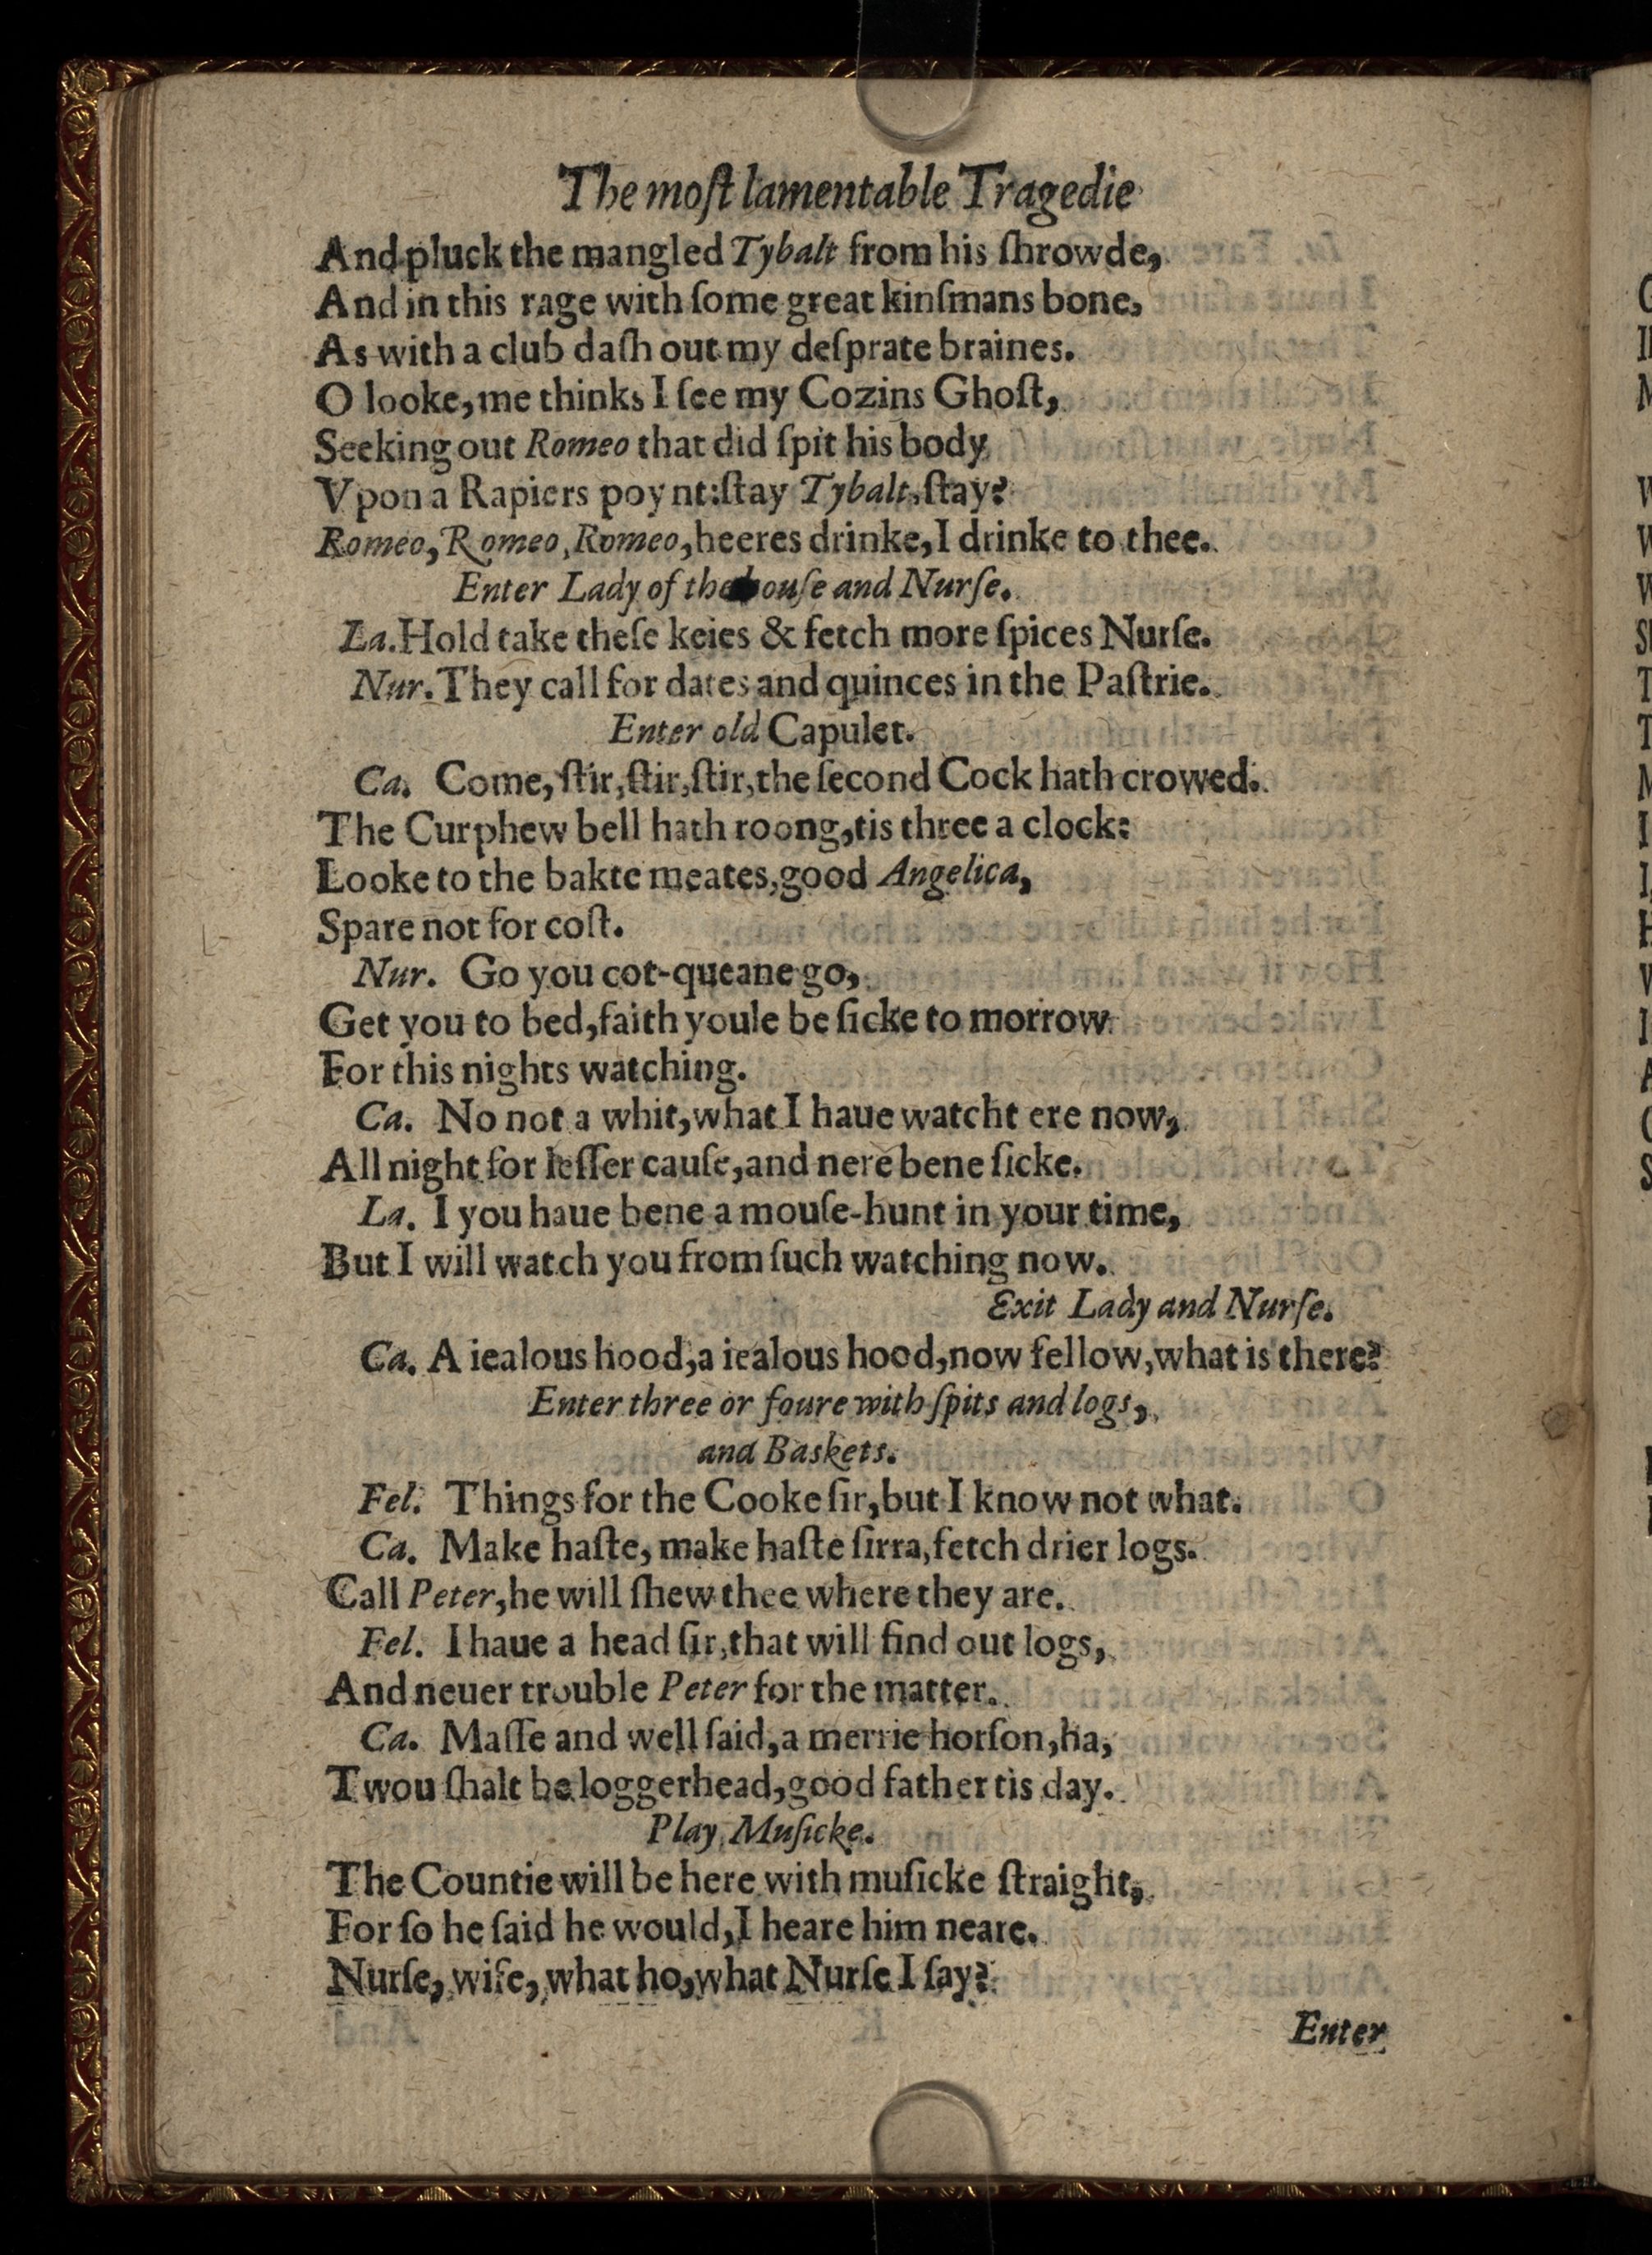 The moſt lamentable Tragedie
And pluck the mangled Tybalt from his ſhrowde,
And in this rage with ſome great kinſmans bone,
As with a club daſh out my deſprate braines.
O looke, me thinks I ſee my Cozins Ghoſt,
Seeking out Romeo that did ſpit his body
Vpon a Rapiers poynt: ſtay Tybalt, ſtay?
Romeo, Romeo, Romeo, heeres drinke, I drinke to thee.
Enter Lady of the houſe and Nurſe.
La. Hold take theſe keies & fetch more ſpices Nurſe.
Nur. They call for dates and quinces in the Paſtrie.
Enter old Capulet.
Ca. Come, ſtir, ſtir, ſtir, the ſecond Cock hath crowed.
The Curphew bell hath roong, tis three a clock:
Looke to the bakte meates, good Angelica,
Spare not for coſt.
Nur. Go you cot-queane go,
Get you to bed, faith youle be ſicke to morrow
For this nights watching.
Ca. No not a whit, what I haue watcht ere now,
All night for leſſer cauſe, and nere bene ſicke.
La. I you haue bene a mouſe-hunt in your time,
But I will watch you from ſuch watching now.
Exit Lady and Nurſe.
Ca. A iealous hood, a iealous hood, now fellow, what is there?
Enter three or foure with ſpits and logs,
and Baskets.
Fel. Things for the Cooke ſir, but I know not what.
Ca. Make haſte, make haſte ſirra, fetch drier logs.
Call Peter, he will ſhew thee where they are.
Fel. I haue a head ſir, that will find out logs,
And neuer trouble Peter for the matter.
Ca. Maſſe and well ſaid, a merrie horſon, ha,
Twou ſhalt be loggerhead, good father tis day.
Play Muſicke.
The Countie will be here with muſicke ſtraight,
For ſo he ſaid he would, I heare him neare.
Nurſe, wife, what ho, what Nurſe I ſay?
Enter